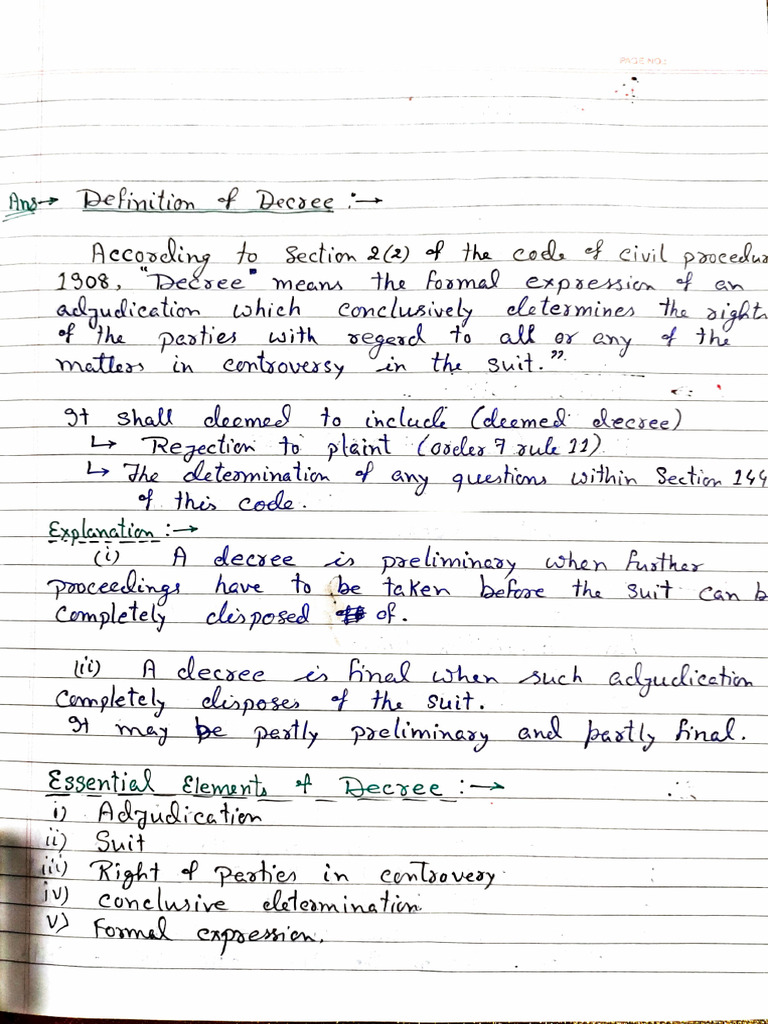 PAGE NO.:
Ans→ Definition of Decree :→
According to Section 2(2) of the code of civil procedur
1908, "Decree" means the formal expression of an
adjudication which conclusively determines the rights
of the parties with regerd to all or any of the
matters in controversy in the suit."
It shall deemed to include (deemed decree)
↳ Rejection to plaint (order 7 rule 11)
↳ The determination of any questions within Section 144
of this code.
Explanation :→
(i) A decree is preliminary when further
proceedings have to be taken before the suit can b
Completely disposed of.
(ii) A decree is final when such adjudication
Completely disposes of the suit.
It may be partly preliminary and partly final.
Essential Elements of Decree :→
i) Adjudication
ii) Suit
iii) Right of parties in controvery
iv) conclusive determination
v) Formal expression.